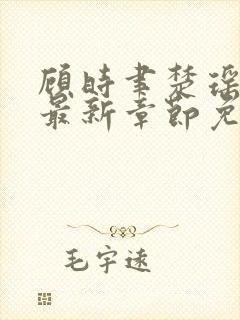 顾时聿楚瑶
最新章节免
毛宇速